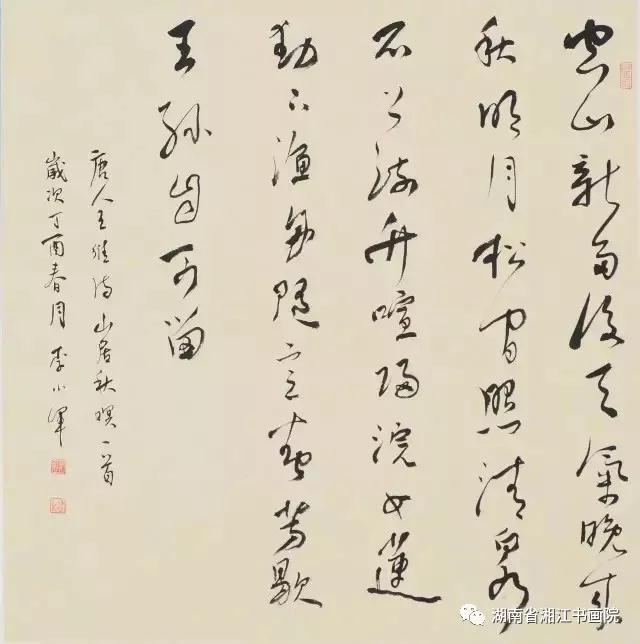 空山新雨後天氣晚来
秋明月松間照清泉
石上流竹喧歸浣女蓮
動下漁舟隨意春芳歇
王孫自可留
唐人王維詩山居秋暝一首
歲次丁酉春月 李小
湖南省湘江书画院